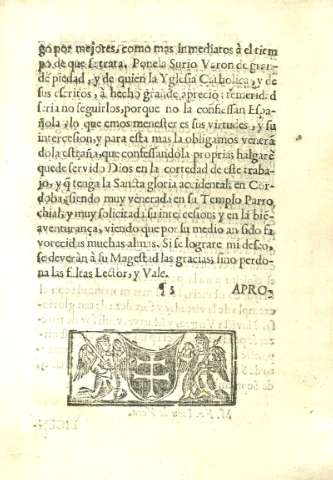 go por mejores, como mas inmediatos à el tiem
po, de que se trata. Ponela Surio Varon de gran
de piedad, y de quien la Yglesia Catholica, y de
sus escritos, à hecho grande aprecio; temerid.d
seria no seguirlos, porque no la confiessan Espa-
ñola, lo que emos menester es sus virtudes, y su
intercesion, y para esta mas la obligamos venerã
dola estraña, que confessandola propria: halgarè
quede servido Dios en la cortedad de este traba-
jo, y q̃ tenga la Sancta gloria accidental: en Cor-
doba, siendo muy venerada en su Templo Parro
chial; y muy solicitada su intercesion; y en la bie-
aventurança, viendo que por su medio an sido fa
vorecidas muchas almas. Si se lograre mi deseo,
se deveràn à su Magestad las gracias, sino perdo-
na las faltas Lector, y Vale.
¶ 3 APRO-